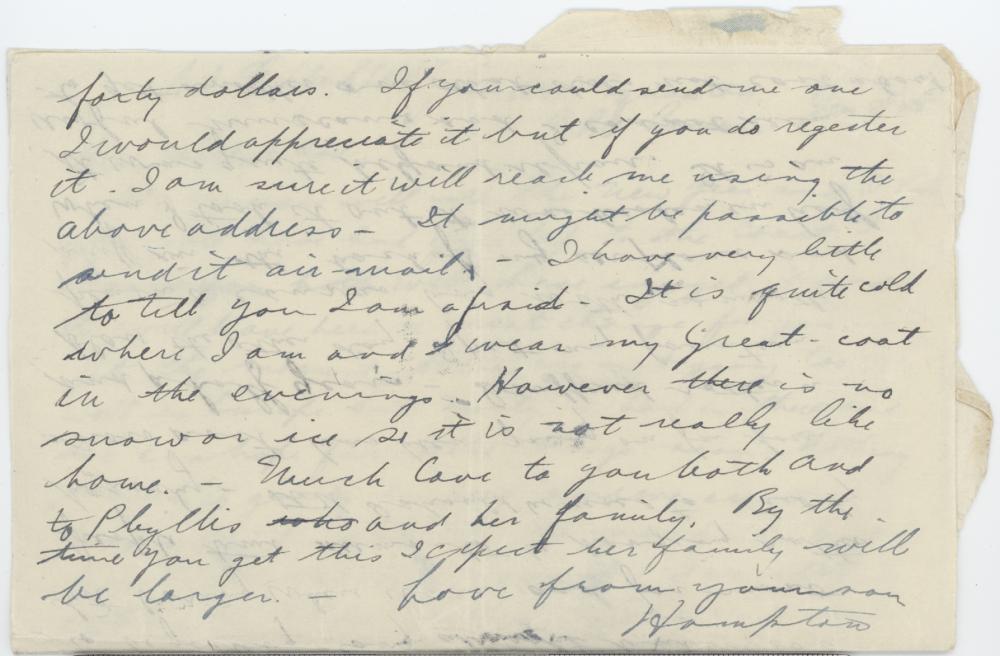 forty dollars. If you could send me one
I would appreciate it but if you do regester
it. I am sure it will reach me using the
above address – It might be possible to
send it air-mail. – I have very little
to tell you I am afraid – It is quite cold
where I am and I wear my Great-coat
in the evenings. However there is no
snow or ice so it is not really like
home. – Much Love to you both and
to Phyllis who and her family. By the
time you get this I expect her family will
be larger. – Love from your son
Hampton